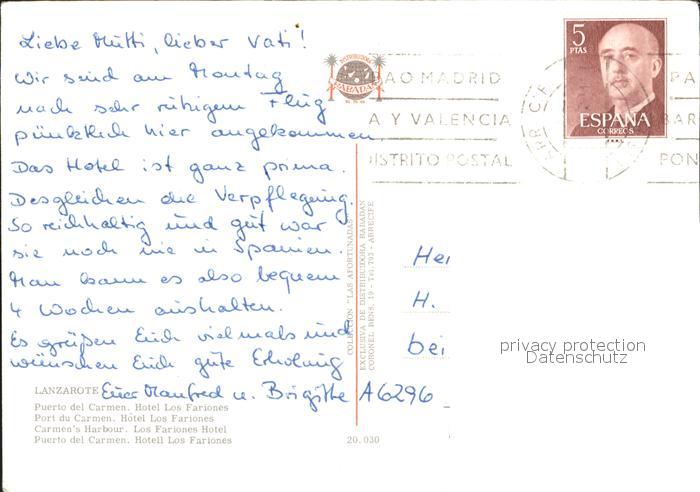 Liebe Mutti, lieber Vati!
Wir sind am Montag
nach sehr ruhigem Flug
pünktlich hier angekommen.
Das Hotel ist ganz prima.
Desgleichen die Verpflegung.
So reichhaltig und gut war
sie noch nie in Spanien.
Man kann es also bequem
4 Wochen aushalten.
Es grüßen Euch vielmals und
wünschen Euch gute Erholung
Eure Manfred u. Brigitte
A6296
LANZAROTE
Puerto del Carmen. Hotel Los Fariones
Port du Carmen. Hôtel Los Fariones
Carmen's Harbour. Los Fariones Hotel
Puerto del Carmen. Hotell Los Fariones
20.030
COLECCION "LAS AFORTUNADAS"
EXCLUSIVA DE DISTRIBUIDORA RABADAN
CORONEL BENS, 19 - Tel. 793 - ARRECIFE
DISTRIBUIDORA
RABADAN
AO MADRID
A Y VALENCIA
DISTRITO POSTAL
PA
BAR
PON
5
PTAS
ESPAÑA
CORREOS
Hei
H.
bei
privacy protection
Datenschutz